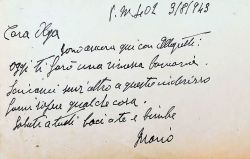 P.M. 402 3/8/943
Cara Olga
sono ancora qui con
oggi ti farò una rimessa bancaria.
Scrivimi pur'altro a questo indirizzo
fammi sapere qualche cosa.
Saluti a tutti baciate e bimbe
Mario